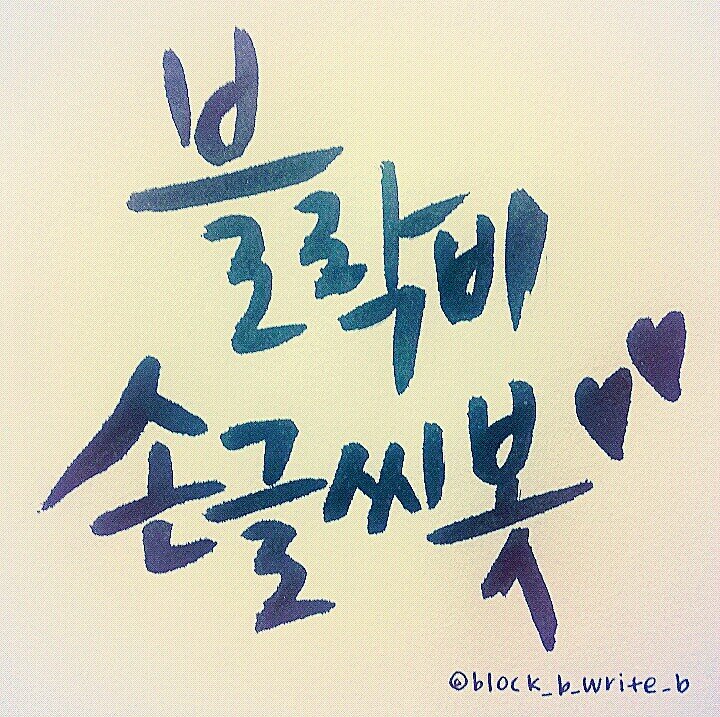 블락비
손글씨봇
@block_b_write_b